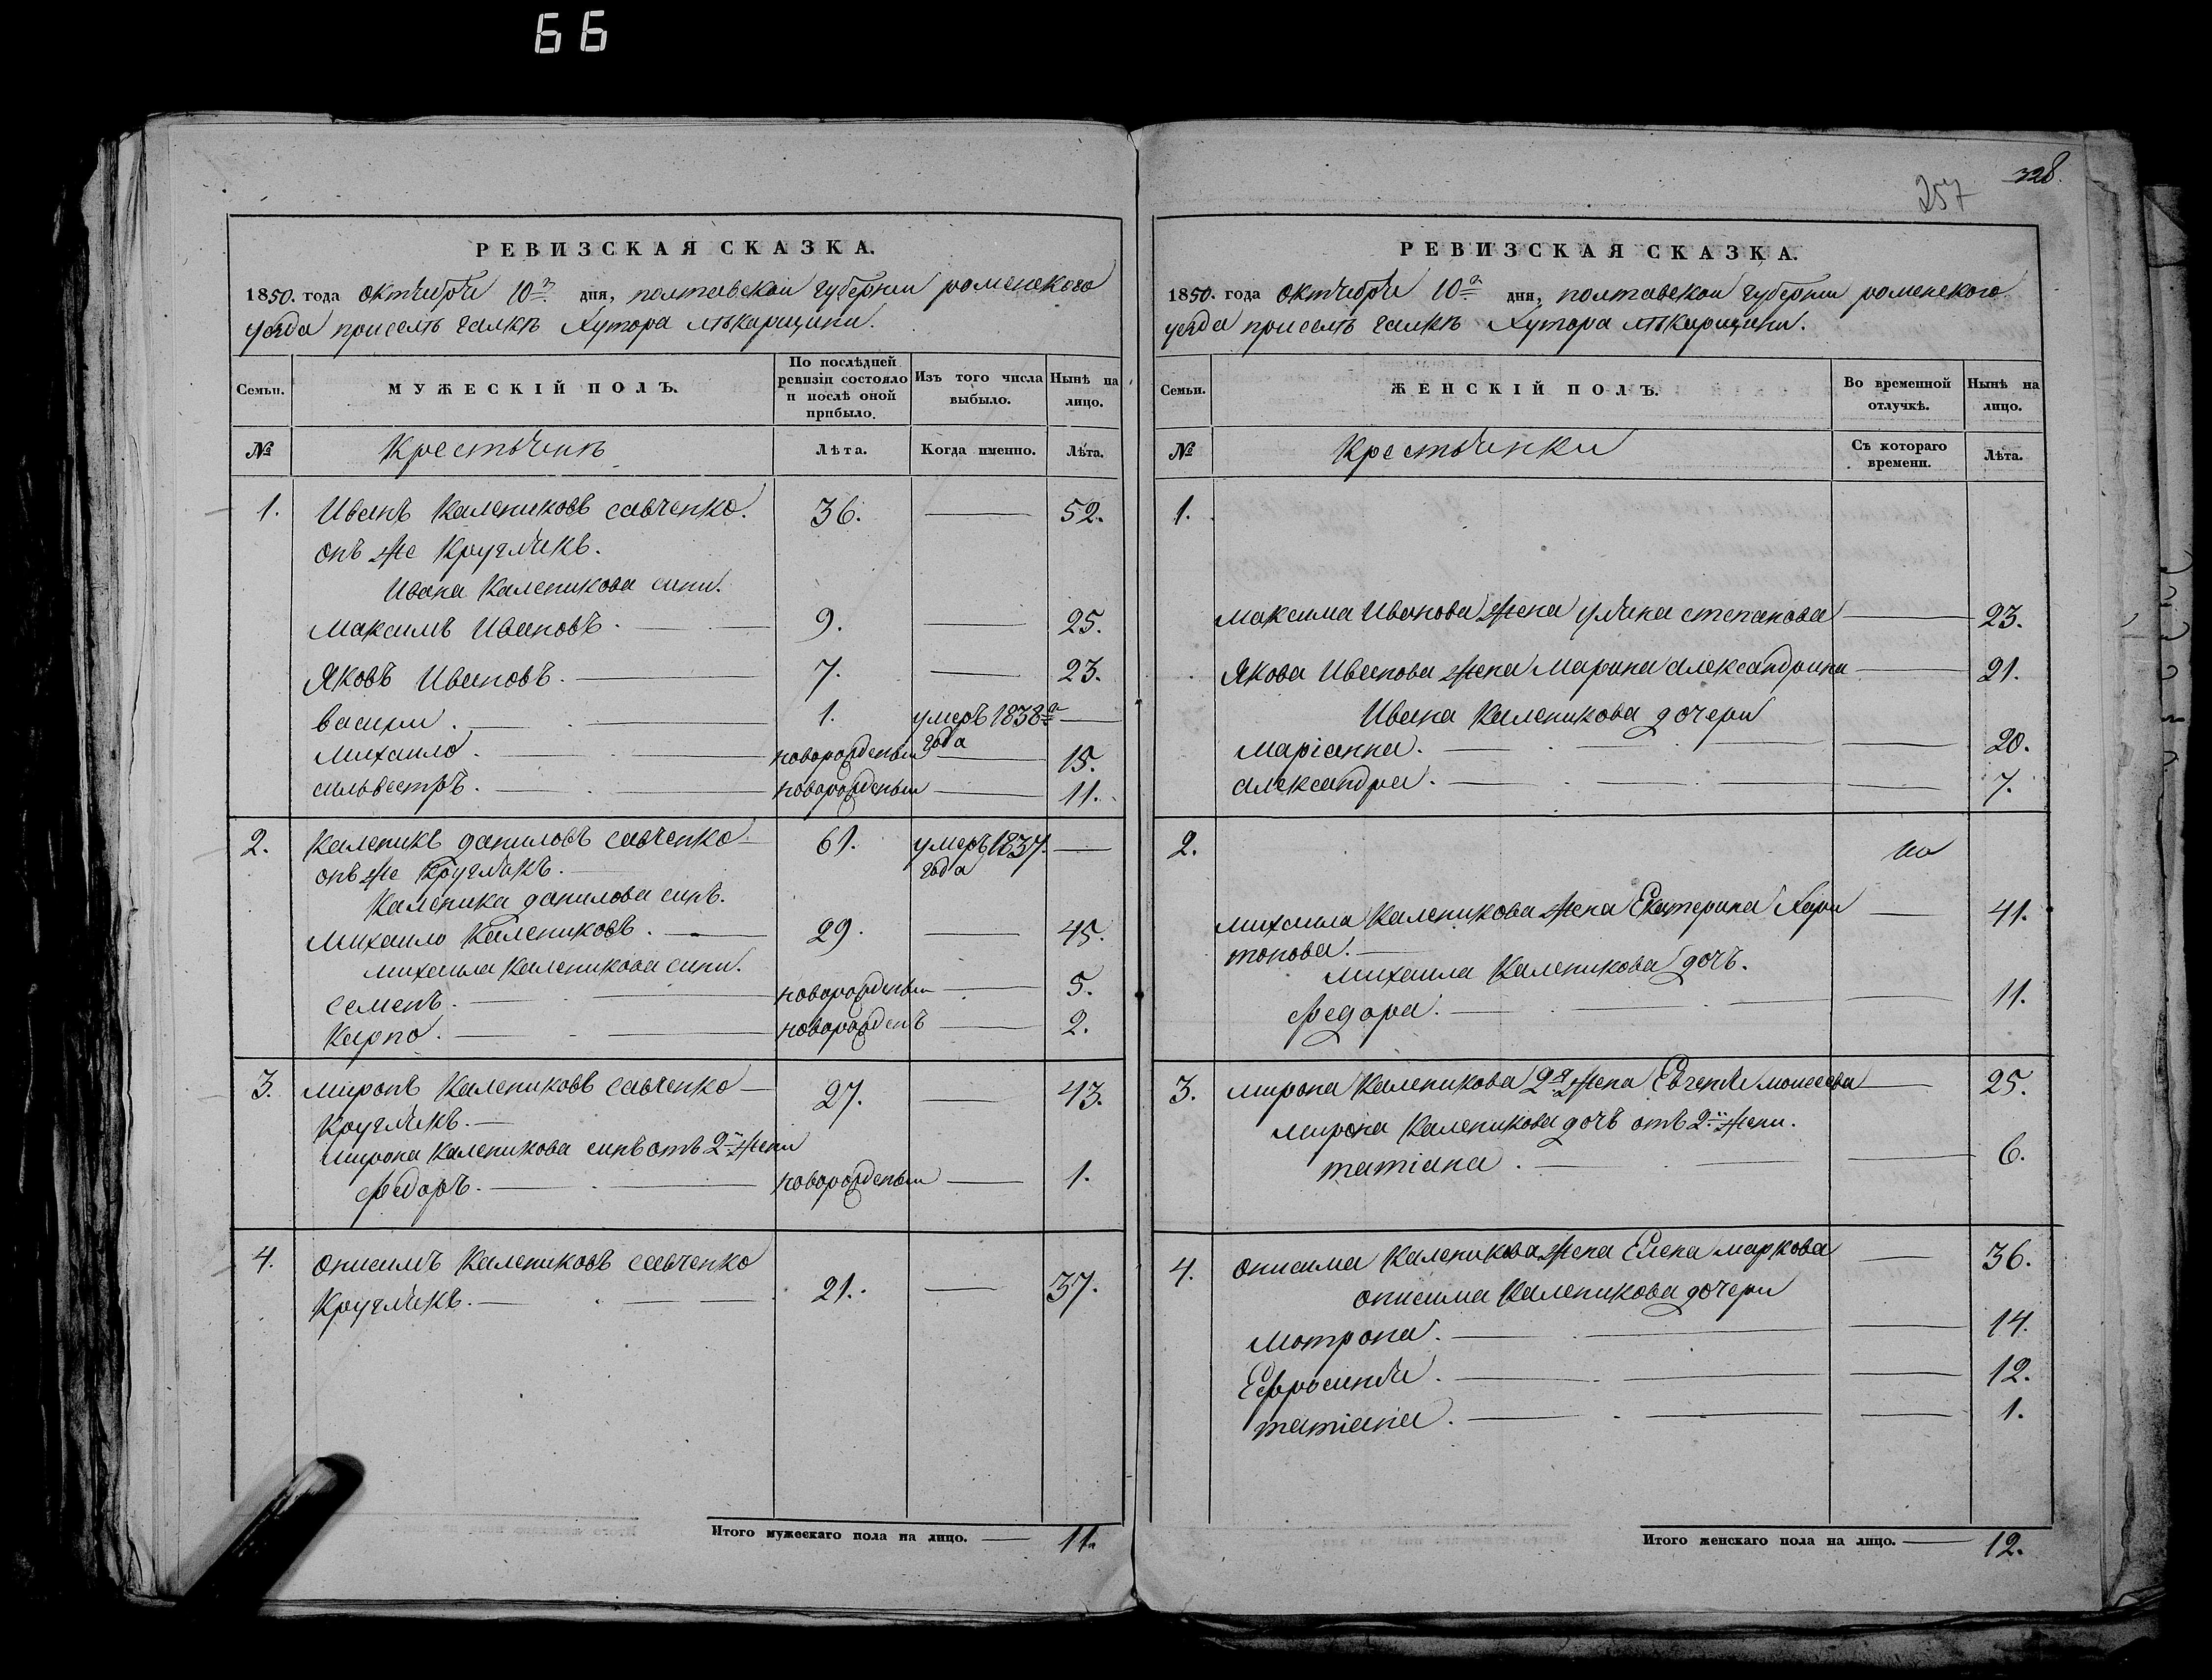 66
257 328.
РЕВИЗСКАЯ СКАЗКА.
1850. года октября 10го дня, полтавскои губернии роменского
уезда приселѣ галкѣ хутора лѣкарщини.
Семьи.
МУЖЕСКІЙ ПОЛЪ.
По послѣдней ревизіи состояло и послѣ оной прибыло.
Изъ того числа выбыло.
Нынѣ на лицо.
№
Крестьянъ
Лѣта.
Когда именно.
Лѣта.
1. Иванъ Калениковъ савченко. 36. — 52.
онъ же Круглякъ.
Ивана Каленикова сини.
максимъ Ивановъ. — 9. — 25.
Яковъ Ивановъ. — 7. — 23.
васили. — 1. умеръ 1838го года —
михаило. — новорожденыи — 15.
сильвестръ. — новорожденыи — 11.
2. Каленикъ даниловъ савченко — 61. умеръ 1837. года —
онъ же Круглякъ. —
Каленика данилова синъ.
михаило Калениковъ. — 29. — 45.
михаила Каленикова сини.
семенъ. — новорожденыи — 5.
Карпо. — новорожденъ — 2.
3. миронъ Калениковъ савченко — 27. — 43.
Круглякъ. —
мирона Каленикова синъ отъ 2й жени
федоръ. — новорожденыи — 1.
4. онисимъ Калениковъ савченко
Круглякъ. — 21. — 37.
Итого мужескаго пола на лицо. — 11.
РЕВИЗСКАЯ СКАЗКА.
1850. года октября 10го дня, полтавскои губернии роменского
уезда приселѣ галкѣ хутора лѣкарщини.
Семьи.
ЖЕНСКІЙ ПОЛЪ.
Во временной отлучкѣ.
Нынѣ на лицо.
№
Крестьянки
Съ котораго времени.
Лѣта.
1.
максима Иванова жена уляна степанова — 23.
Якова Иванова жена марина александрина — 21.
Ивана Каленикова дочери
маріанна. — 20.
александра. — 7.
2.
михаила Каленикова жена Екатерина Хари — 41.
тонова. —
михаила Каленикова дочъ.
федора. — 11.
3. мирона Каленикова 2я жена Евгения моисеева — 25.
мирона Каленикова дочъ отъ 2й жени.
татіана. — 6.
4. онисима Каленикова жена Елена маркова — 36.
онисима Каленикова дочери
мотрона. — 14.
Ефросиния. — 12.
татіана. — 1.
Итого женскаго пола на лицо. — 12.